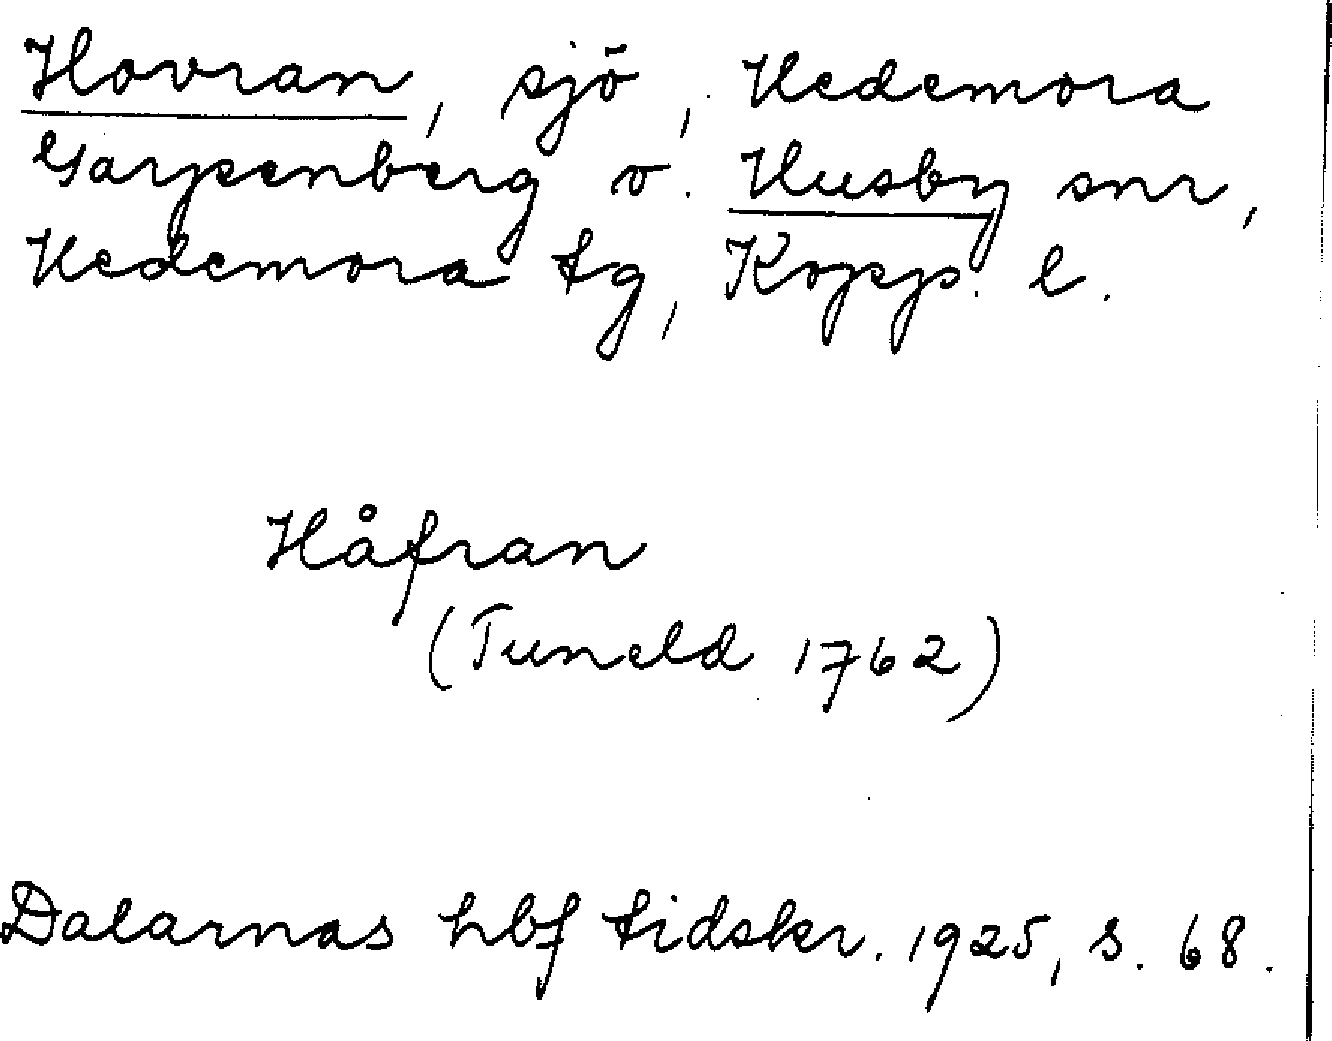 Hovran, sjö, Hedemora
Garpenberg o. Husby snr,
Hedemora tg, Kopp. l.
Håfran
(Tuneld 1762)
Dalarnas hbf tidskr. 1925, s. 68.